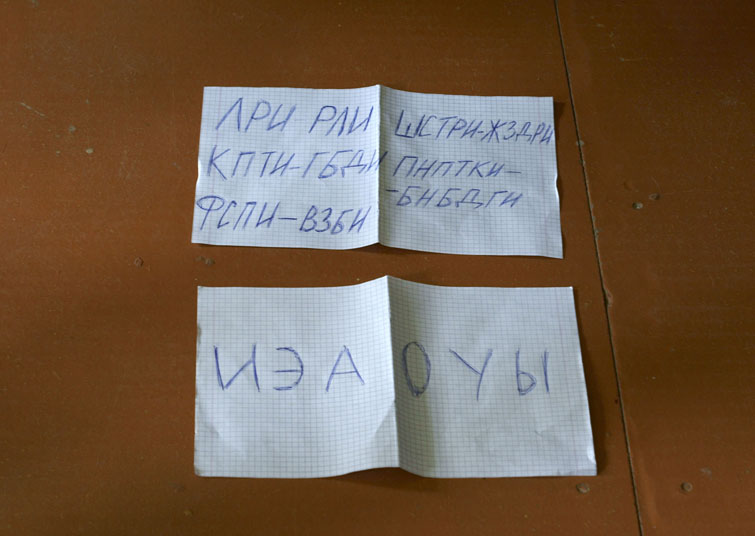 ЛРИ РЛИ
КПТИ-ГБДИ
ФСПИ-ВЗБИ
ШСТРИ-ЖЗДРИ
ПНПТКИ-
-БНБДГИ
ИЭАОУЫ